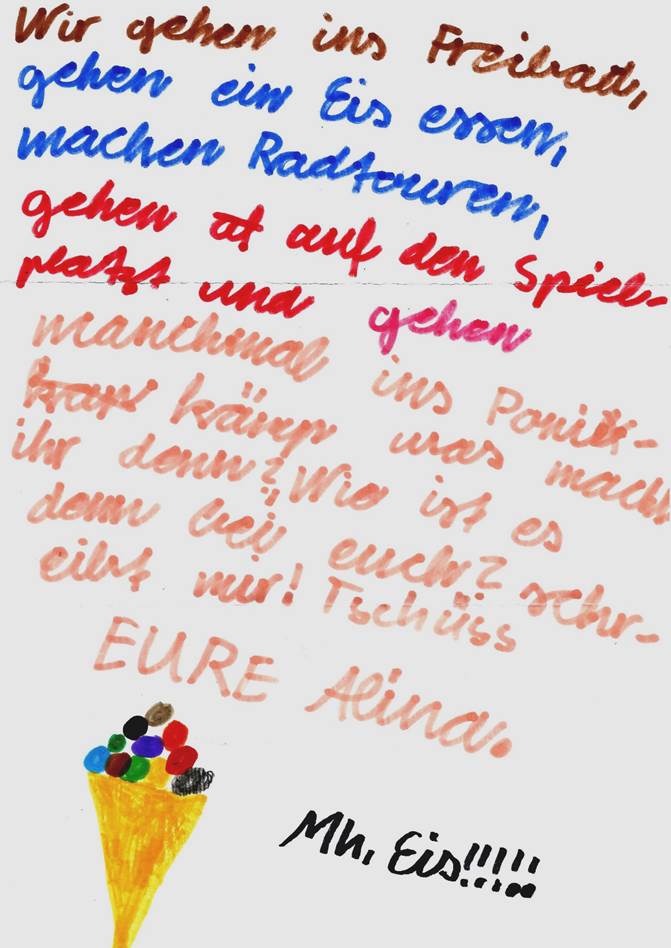 Wir gehen ins Freibad,
gehen ein Eis essen,
machen Radtouren,
gehen of auf den Spiel-
platzt und gehen
manchmal ins Ponik-
kämp was macht
ihr denn? Wie ist es
denn bei euch? schr-
eibt mir! Tschüss
EURE Alina.
Mh, Eis!!!!!